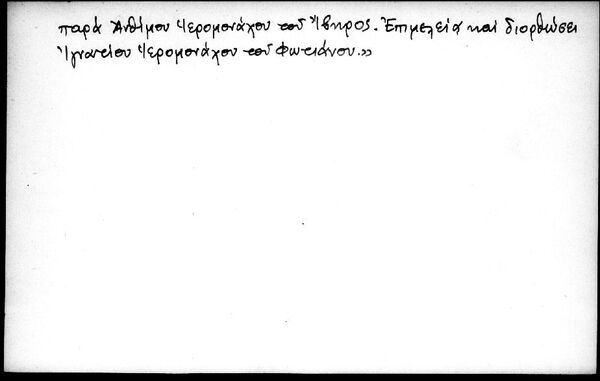 παρὰ Ἀνθίμου Ἱερομονάχου τοῦ Ἴβηρος. Ἐπιμελείᾳ καὶ διορθώσει
Ἰγνατίου Ἱερομονάχου τοῦ Φωτιάνου.»